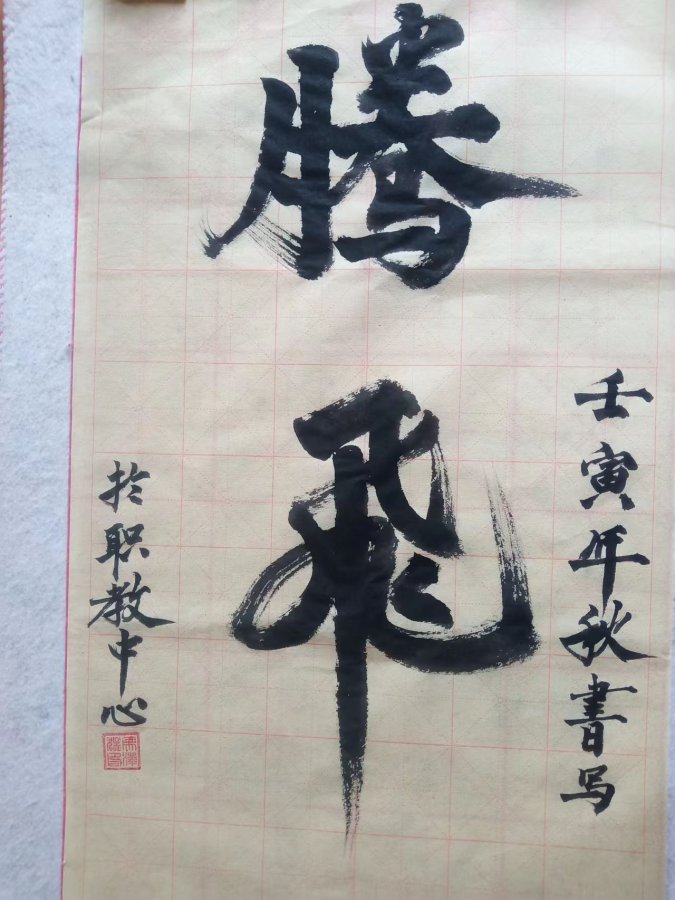 腾飞
壬寅年秋書写
扵职教中心